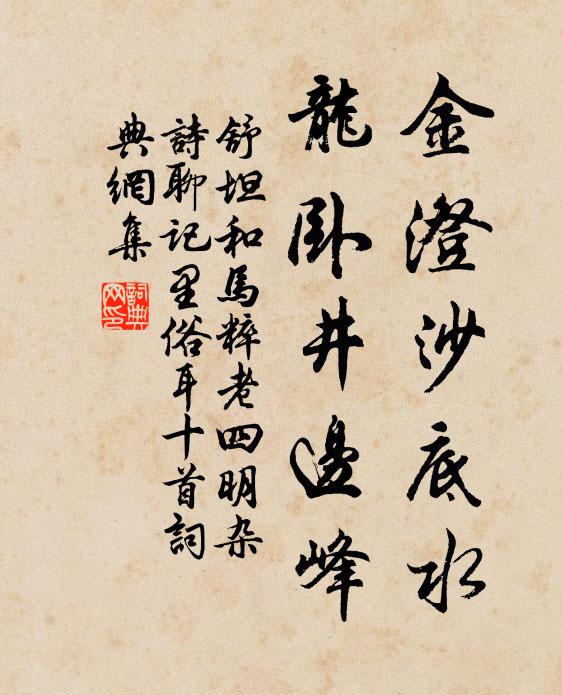 金澄沙底水
龍卧井邊峰
舒坦和馬粹老四明杂
詩聊记里俗耳十首詞
典網集
詞典网印